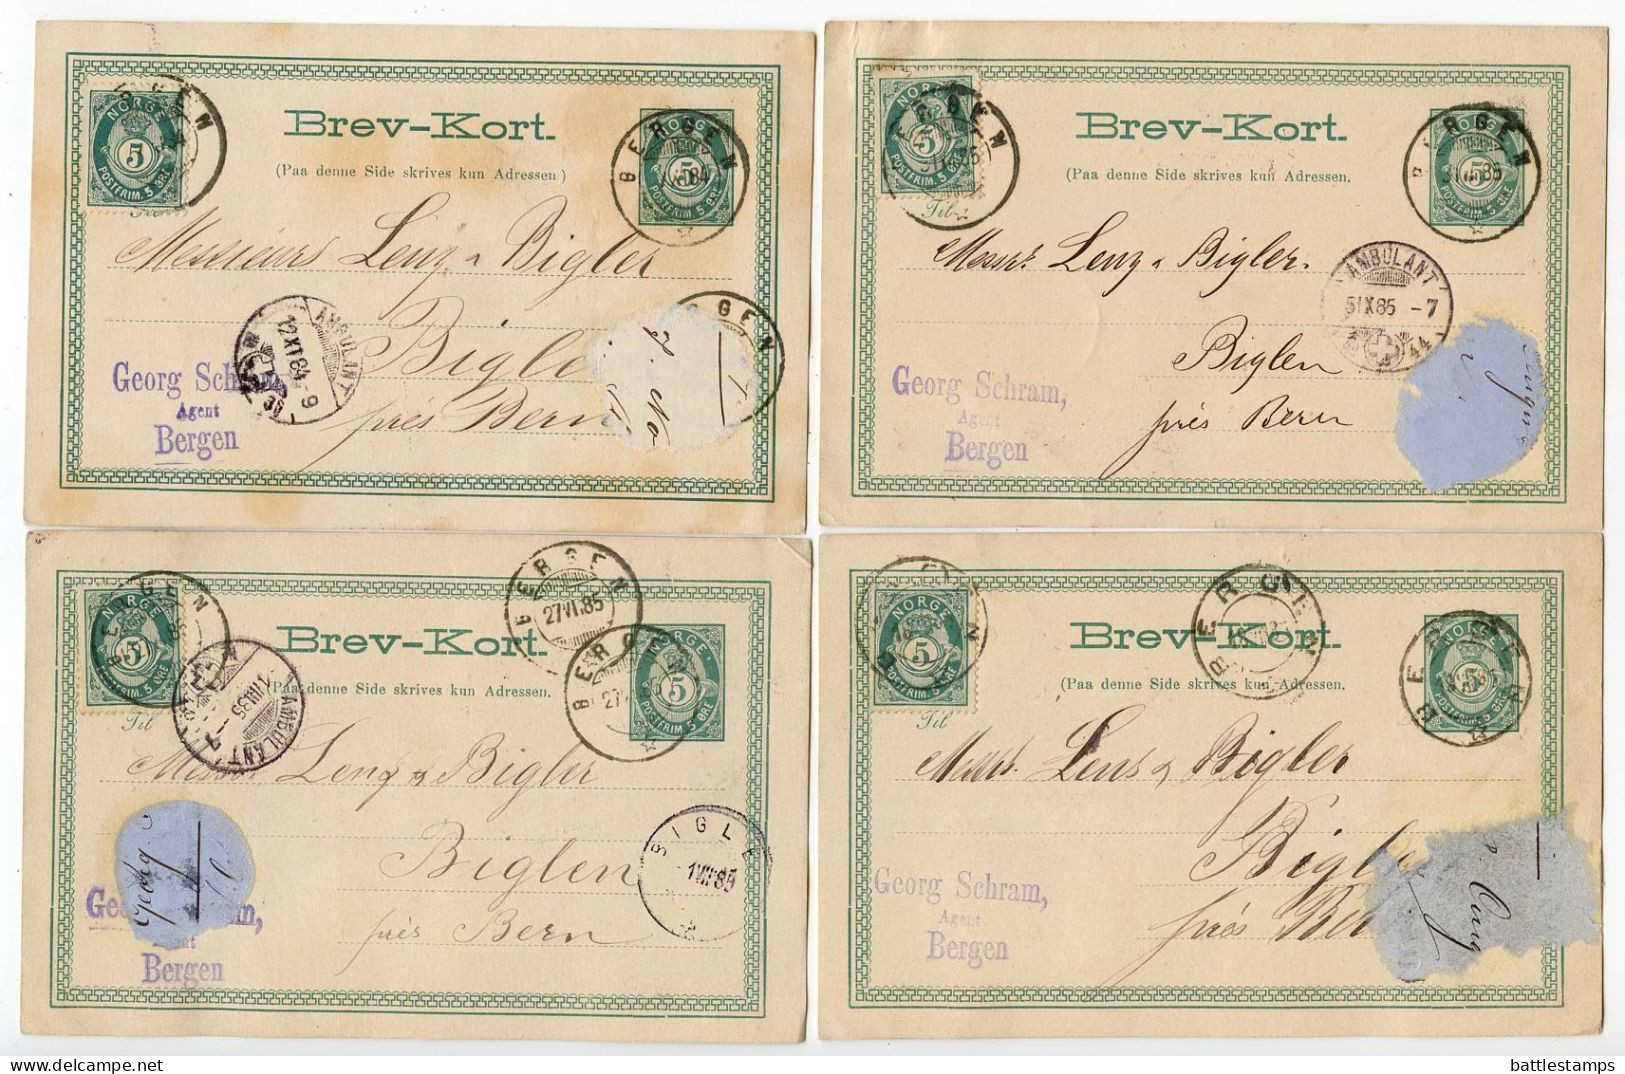 NORGE
5
POSTFRIM. 5 ØRE
BERGEN
Brev-Kort.
(Paa denne Side skrives kun Adressen)
NORGE
5
POSTFRIM. 5 ØRE
BERGEN
Til
Messieurs Lenz & Bigler
Biglen
près Bern
AMBULANT
12 XI 84 - 9
BERGEN
Georg Schram,
Agent
Bergen
NORGE
5
POSTFRIM. 5 ØRE
BERGEN
Brev-Kort.
(Paa denne Side skrives kun Adressen.
NORGE
5
POSTFRIM. 5 ØRE
BERGEN
Til
Messrs. Lenz & Bigler.
Biglen
près Bern
AMBULANT
5 IX 85 - 7
44
Georg Schram,
Agent
Bergen
NORGE
5
POSTFRIM. 5 ØRE
BERGEN
BERGEN
27 VI 85
Brev-Kort.
(Paa denne Side skrives kun Adressen.
NORGE
5
POSTFRIM. 5 ØRE
BERGEN
Til
AMBULANT
Messrs Lenz & Bigler
Biglen
près Bern
BIGLE
1 VII 85
Georg
Bergen
NORGE
5
POSTFRIM. 5 ØRE
BERGEN
Brev-Kort.
(Paa denne Side skrives kun Adressen.
NORGE
5
POSTFRIM. 5 ØRE
BERGEN
Til
Messrs. Lens & Bigler
Bigle
près Ber
Georg Schram,
Agent
Bergen
battlestamps